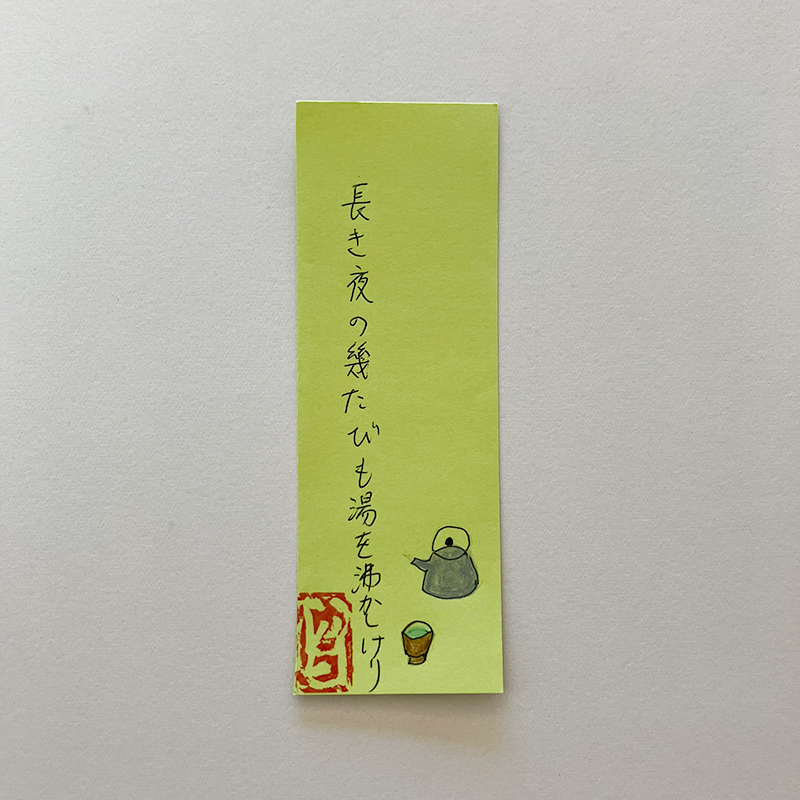 長き夜の幾たびも湯を沸かしけり